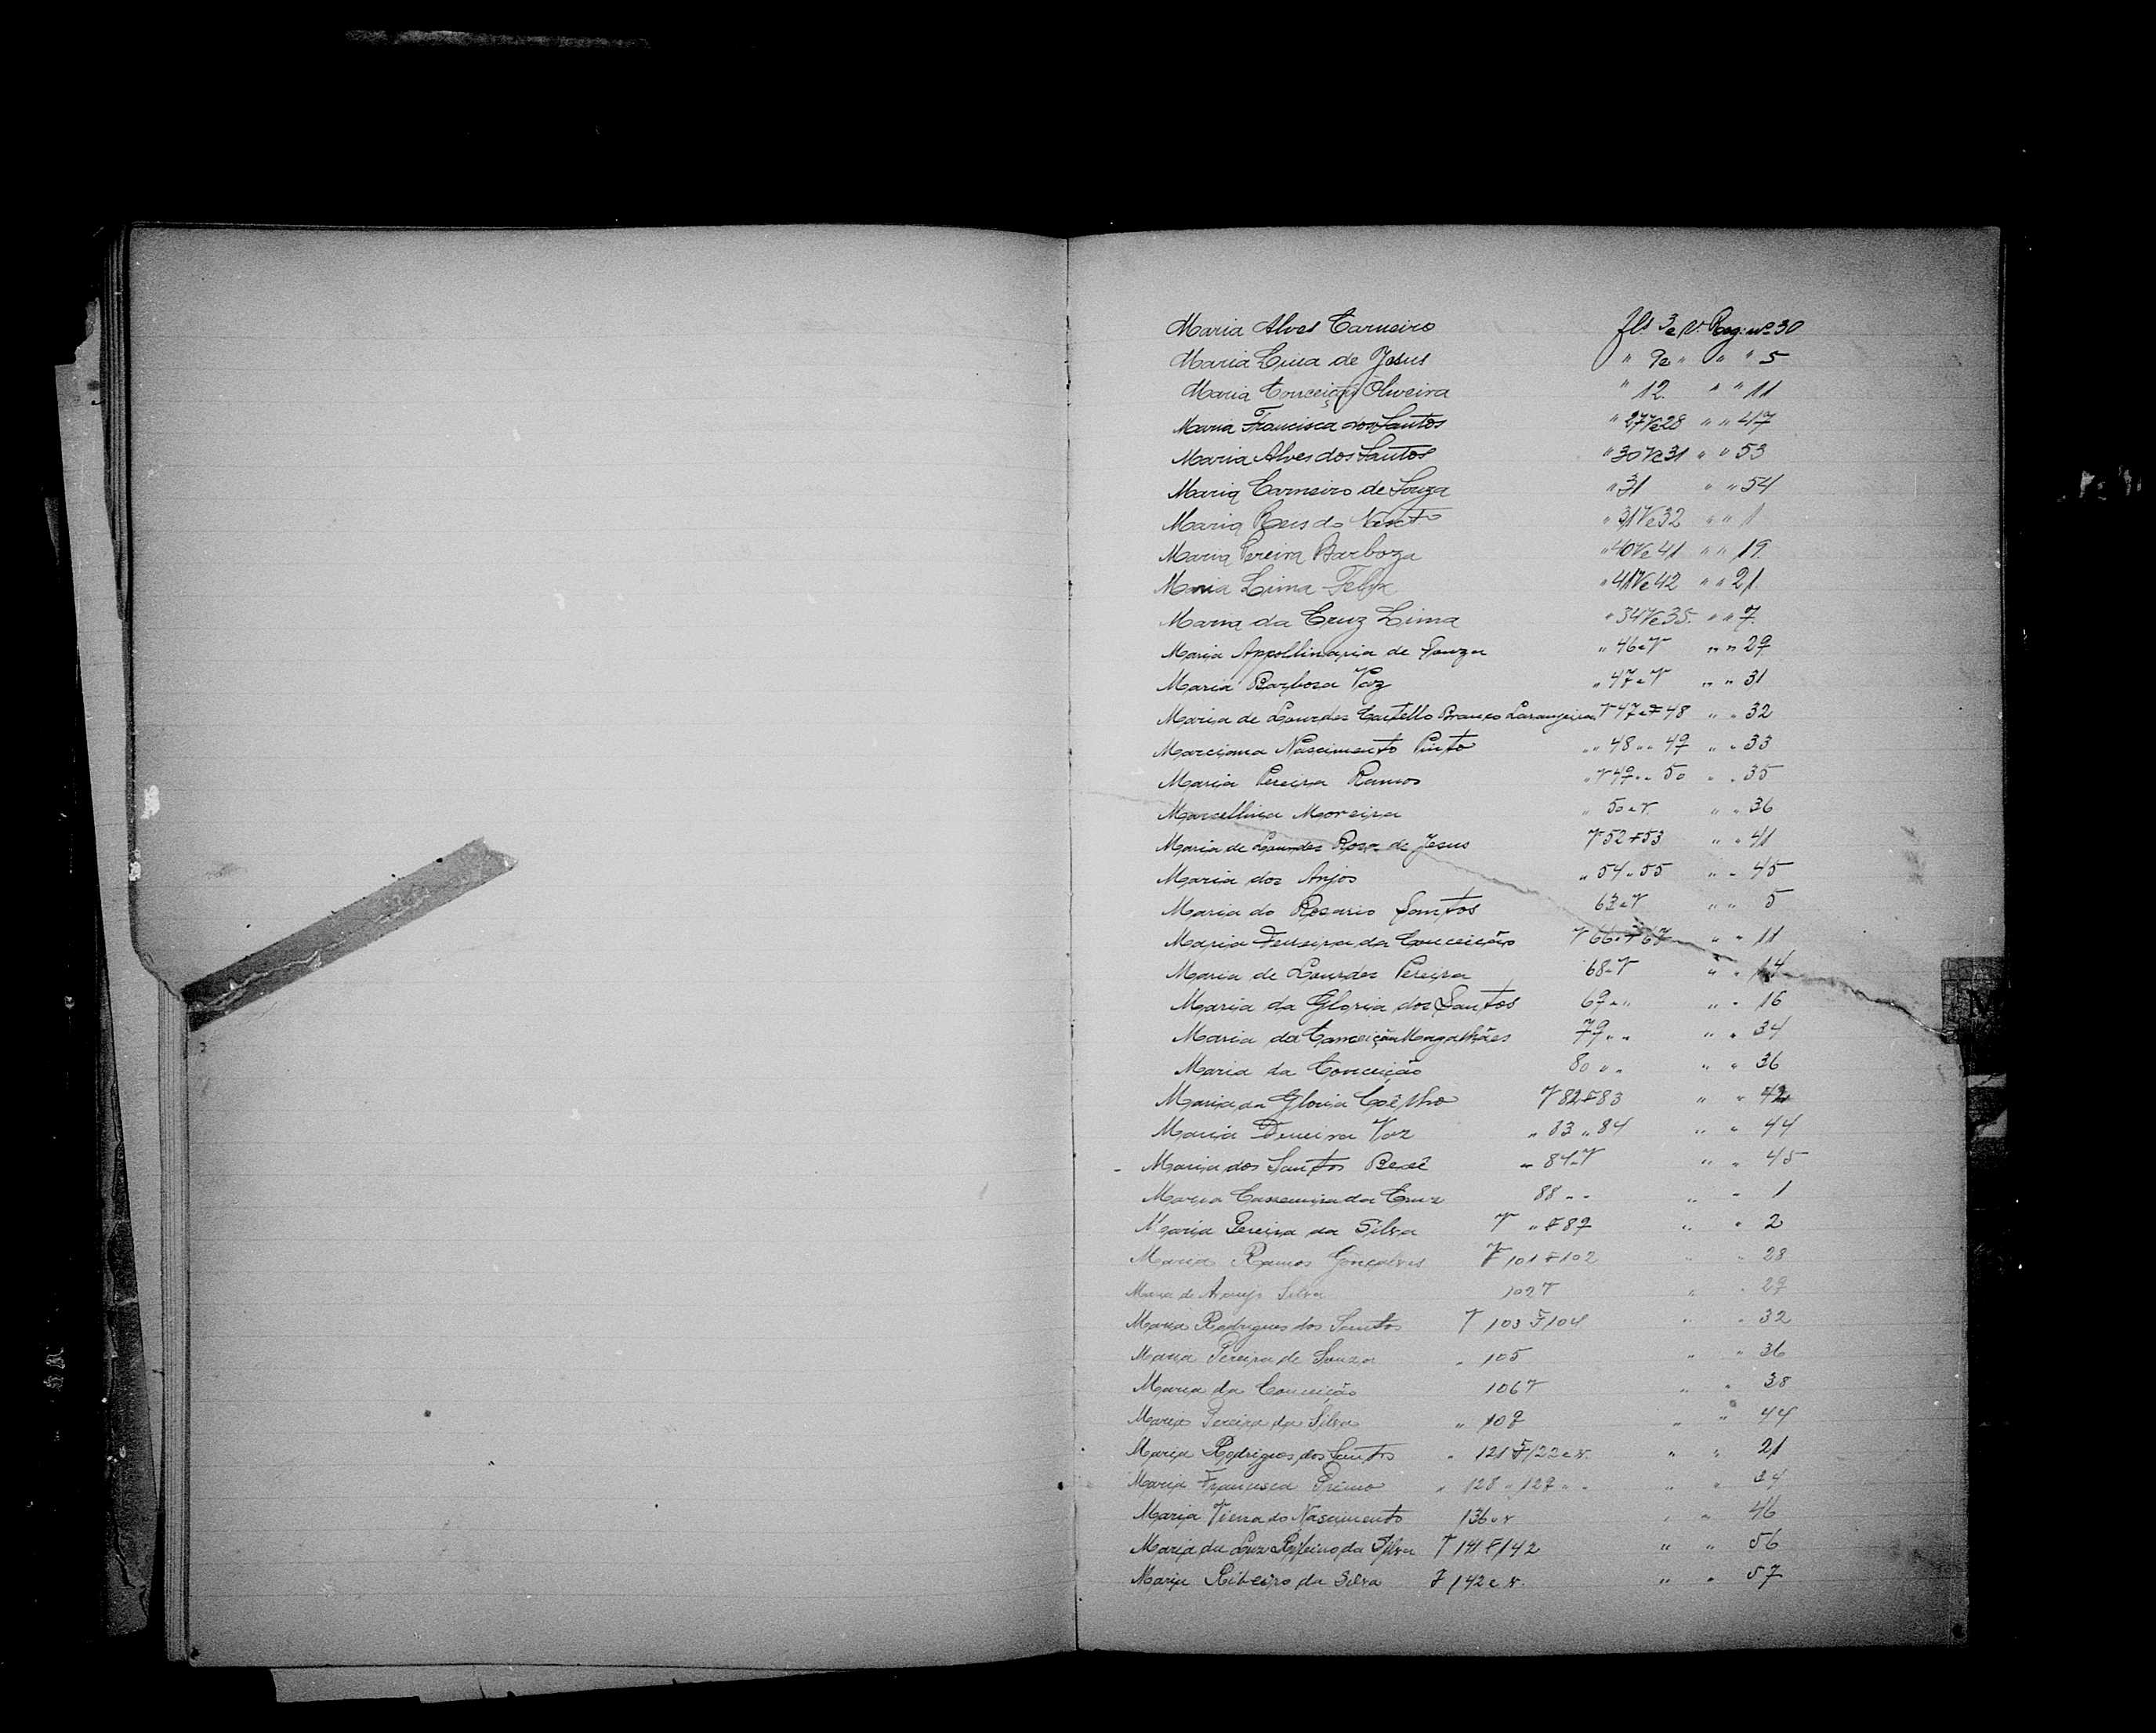 Maria Alves Carneiro fls 3 e V. Reg. nº 30
Maria Luca de Jesus " 9 e " " " 5
Maria Conceição Oliveira " 12. " " 11
Maria Francisca dos Santos " 27 V e 28 " " 47
Maria Alves dos Santos " 30 V e 31 " " 53
Maria Carneiro de Souza " 31 " " 54
Maria Reis do Nasct° " 31 V e 32 " " 1
Maria Pereira Barboza " 40 V e 41 " " 19.
Maria Lima Felix " 41 V e 42 " " 21
Maria da Cruz Lima " 34 V e 35. " " 7.
Maria Appollinaria de Souza " 46 e V " " 29
Maria Barbosa Vaz " 47 e V " " 31
Maria de Lourdes Castello Branco Laranjeira V 47 e F 48 " " 32
Marciana Nascimento Pinto " " 48 " " 49 " " 33
Maria Pereira Ramos " V 49 " " 50 " " 35
Marcellina Moreira " 50 e V. " " 36
Maria de Lourdes Rosa de Jesus V 52 F 53 " " 41
Maria dos Anjos " 54 " 55 " " 45
Maria do Rosario Santos 63 e V " " 5
Maria Ferreira da Conceição V 66 e F 67 " " 11
Maria de Lourdes Pereira 68 e V " " 14
Maria da Gloria dos Santos 69 " " " " 16
Maria da Conceição Magalhães 79 " " " " 34
Maria da Conceição 80 " " " " 36
Maria da Gloria Coêlho V 82 F 83 " " 42
Maria Ferreira Vaz " 83 " 84 " " 44
- Maria dos Santos Besê " 84 e V " " 45
Maria Cassemira da Cruz 88 " " " " 1
Maria Pereira da Silva V " F 89 " " 2
Maria Ramos Gonçalves V 101 F 102 " " 28
Maria de Araujo Silva 102 V " " 29
Maria Rodrigues dos Santos V 103 F 104 " " 32
Maria Pereira de Souza " 105 " " 36
Maria da Conceição 106 V " " 38
Maria Pereira da Silva " 109 " " 44
Maria Rodrigues dos Santos " 121 F 122 e v. " " 21
Maria Francisca Primo " 128 " 129 " " " " 34
Maria Vieira do Nascimento 136 e v " " 46
Maria da Luz Ribeiro da Silva V 141 F 142 " " 56
Maria Ribeiro da Silva F 142 e v. " " 57